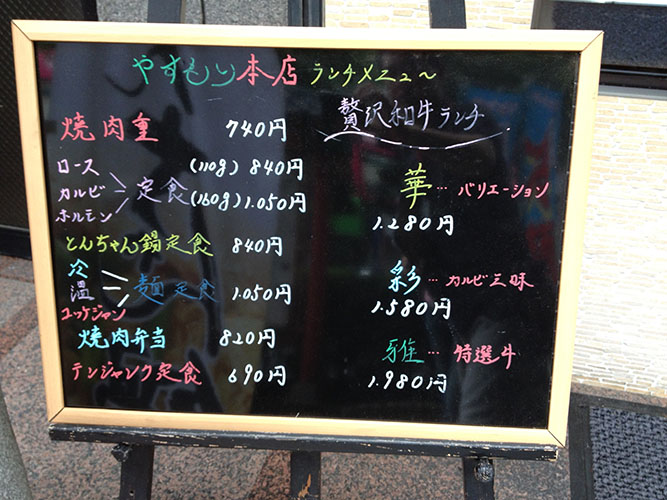 やすもり本店 ランチメニュ〜
焼肉重 740円
ロース
カルビ
ホルモン
定食
(110g) 840円
(160g) 1.050円
とんちゃん鍋定食 840円
冷
温
麺定食 1.050円
ユッケジャン
焼肉弁当 820円
テンジャンク定食 690円
贅沢和牛ランチ
華…バリエーション
1.280円
彩…カルビ三昧
1.580円
雅…特選牛
1.980円